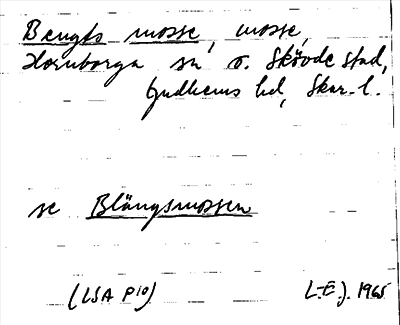 Bengts mosse, mosse,
Hornborga sn o. Skövde stad,
Gudhems hd, Skar. l.
se Blängsmossen
(LSA P10)
L.E.J. 1965